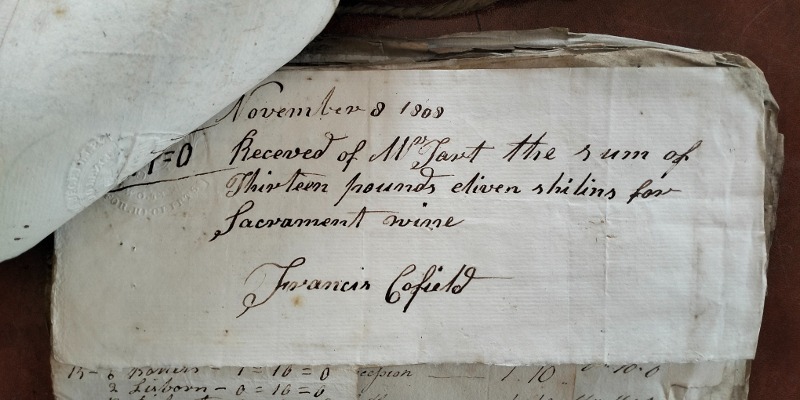 November 8 1808
=0 Receved of Mrs Tart the sum of
Thirteen pounds eliven shilins for
Sacrament wine
Francis Cofield
1 = 16 = 0
1.10
2 Lisborn - 0 = 16 = 0